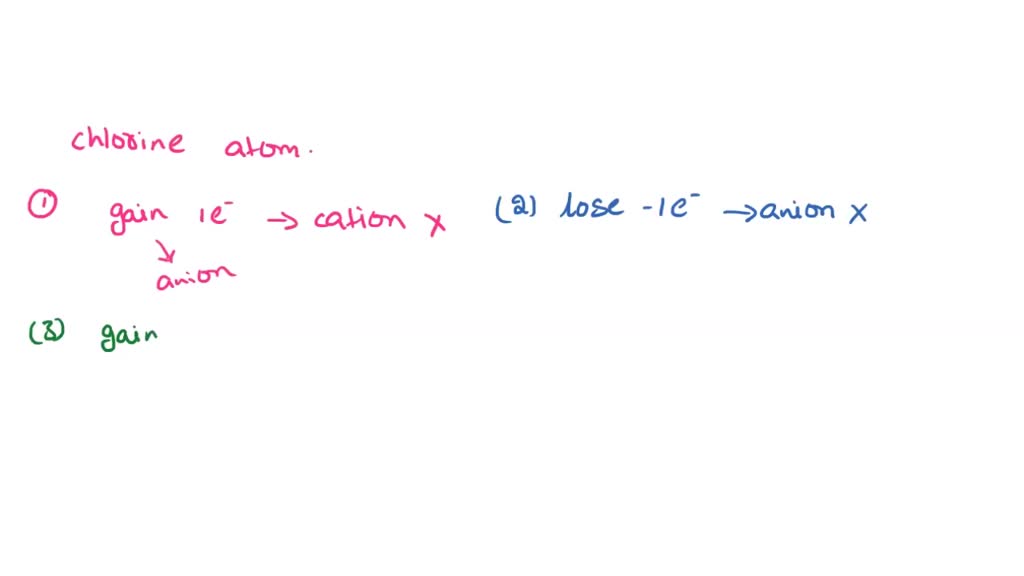 chlorine atom.
① gain 1e⁻ → cation x
↘
anion
(2) lose -1e⁻ → anion x
(3) gain